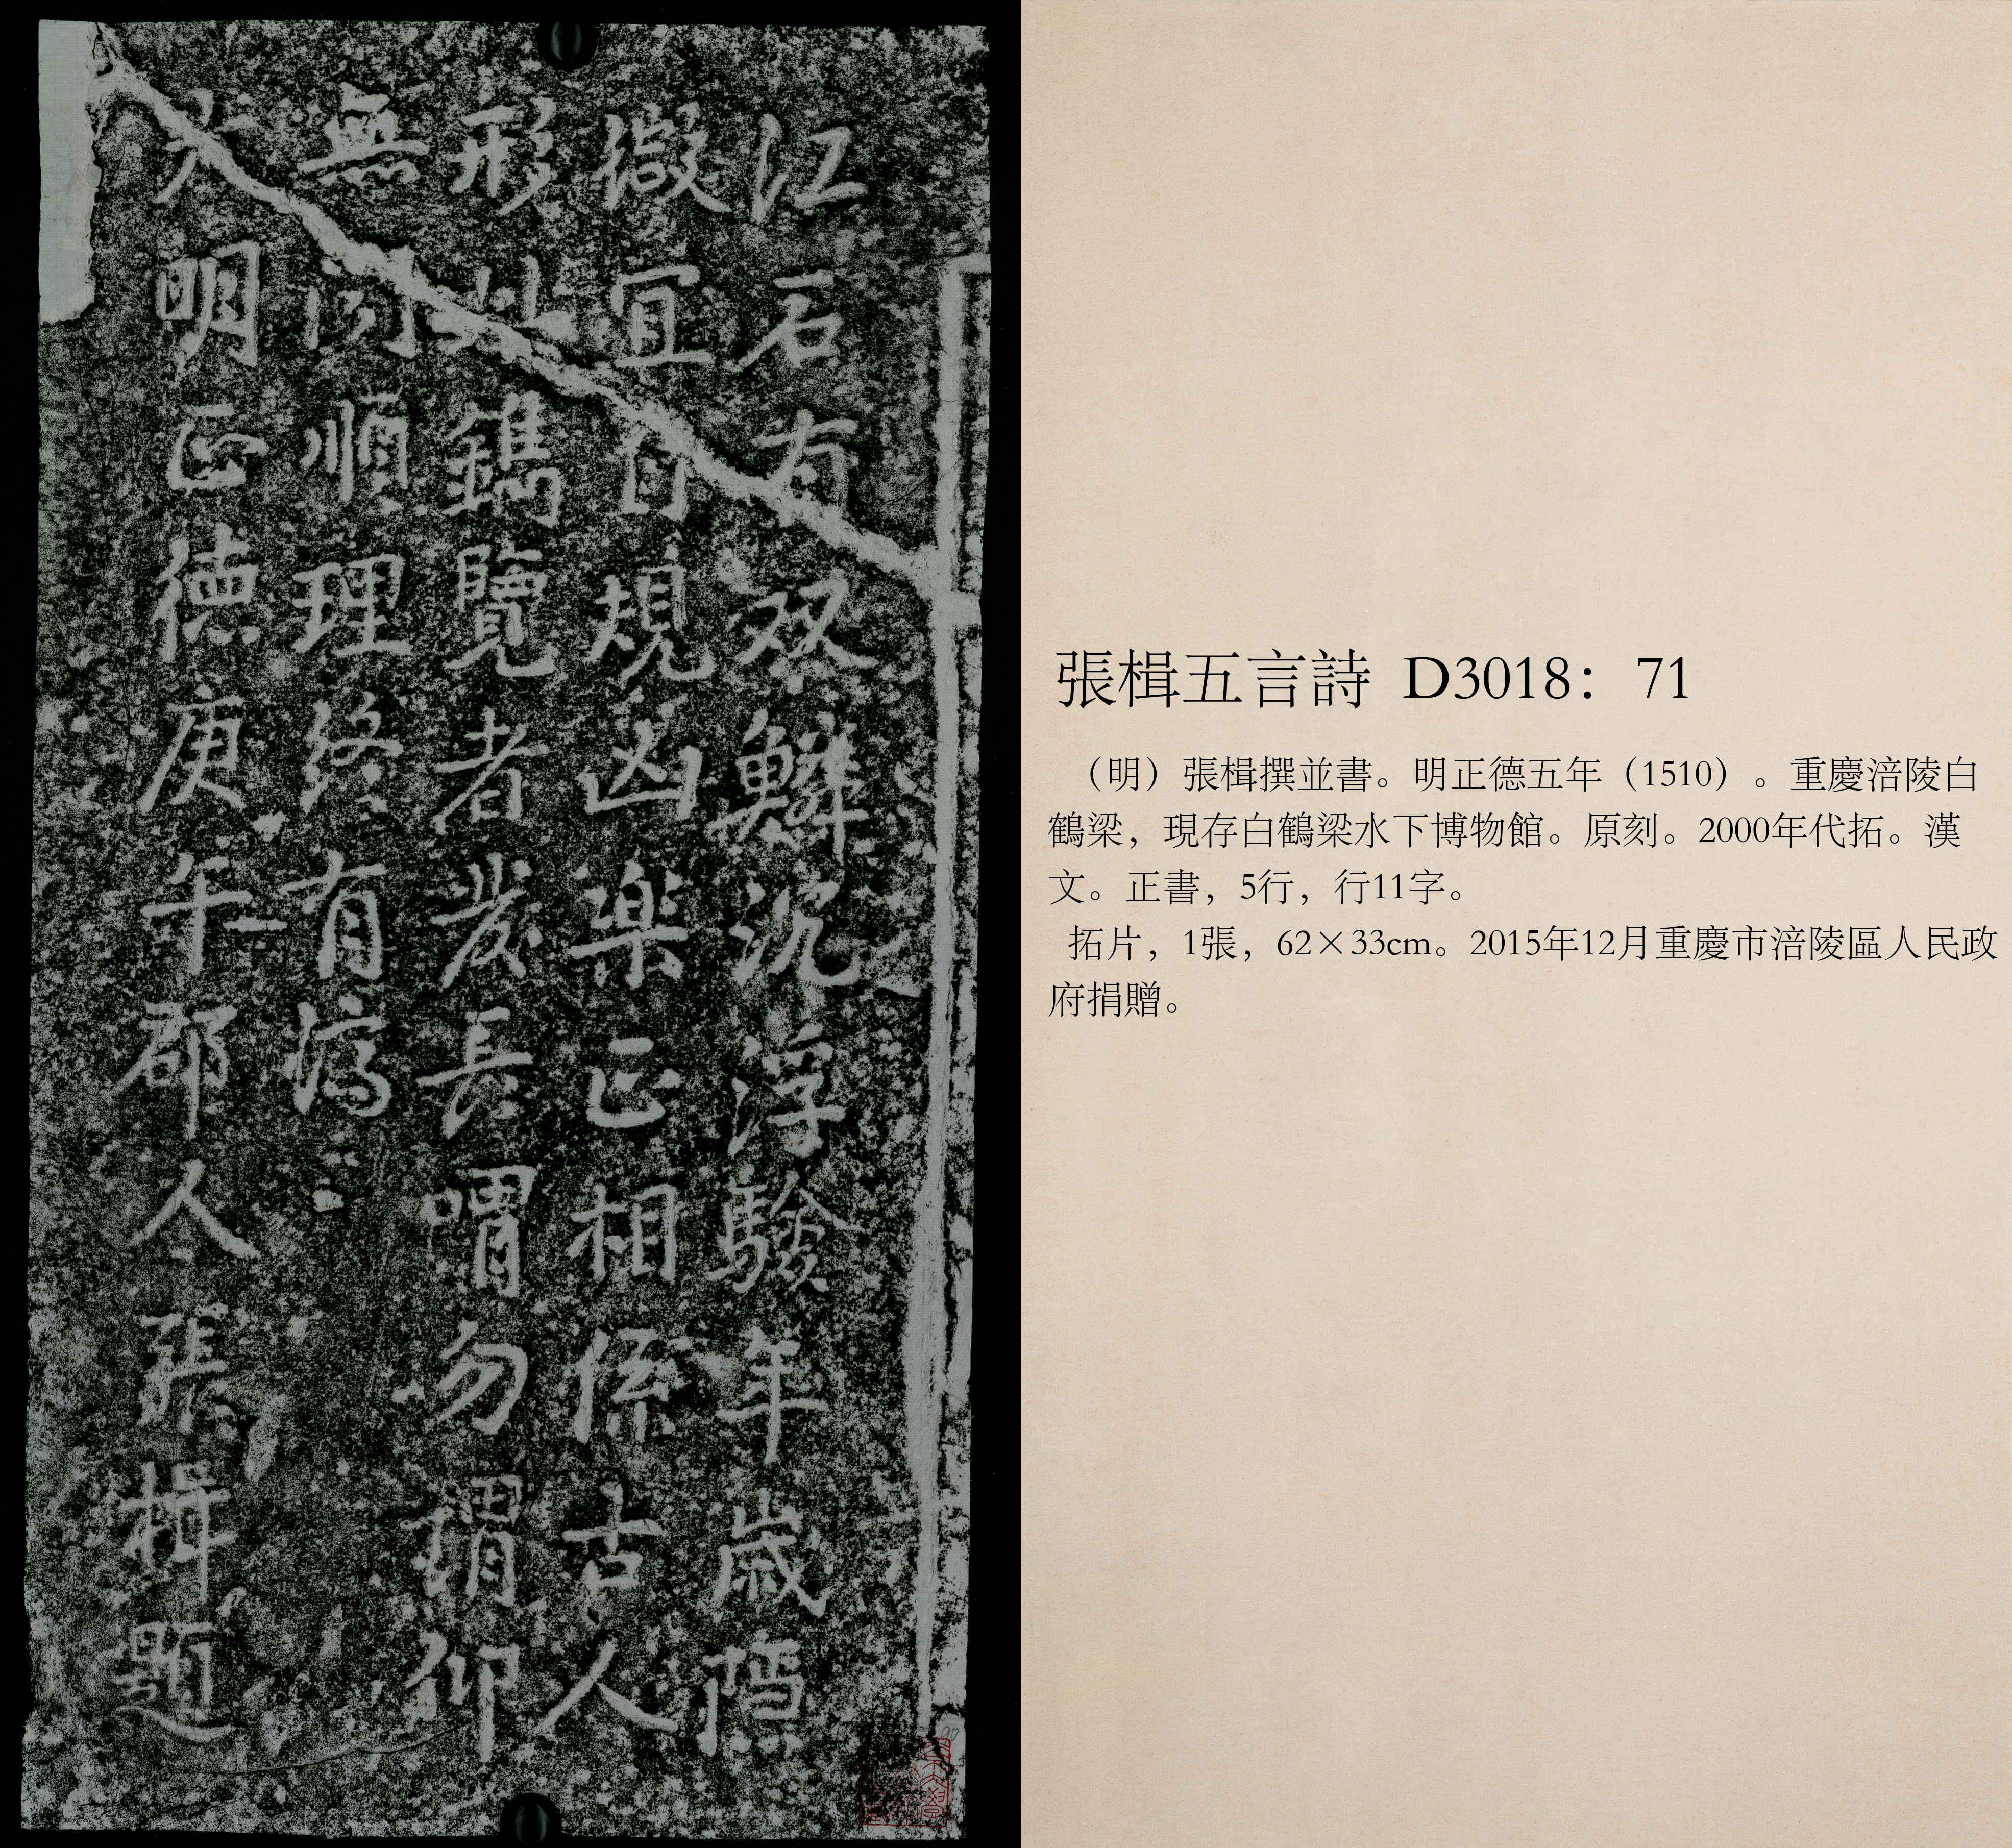 江石有双鱗沉浮驗年歲隱
微宜自規凶楽正相係古人
形此鐫覽者發長喟勿謂仰
無順理終有濟
大明正德庚午郡人張楫題
張楫五言詩 D3018：71
（明）張楫撰並書。明正德五年（1510）。重慶涪陵白
鶴梁，現存白鶴梁水下博物館。原刻。2000年代拓。漢
文。正書，5行，行11字。
拓片，1張，62×33cm。2015年12月重慶市涪陵區人民政
府捐贈。